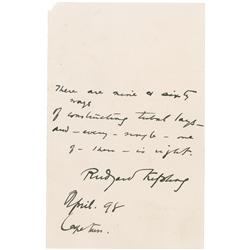 There are nine & sixty
ways
of constructing tribal lays –
and – every – single – one
of – them – is right.
Rudyard Kipling
April. 98
Cape Town.